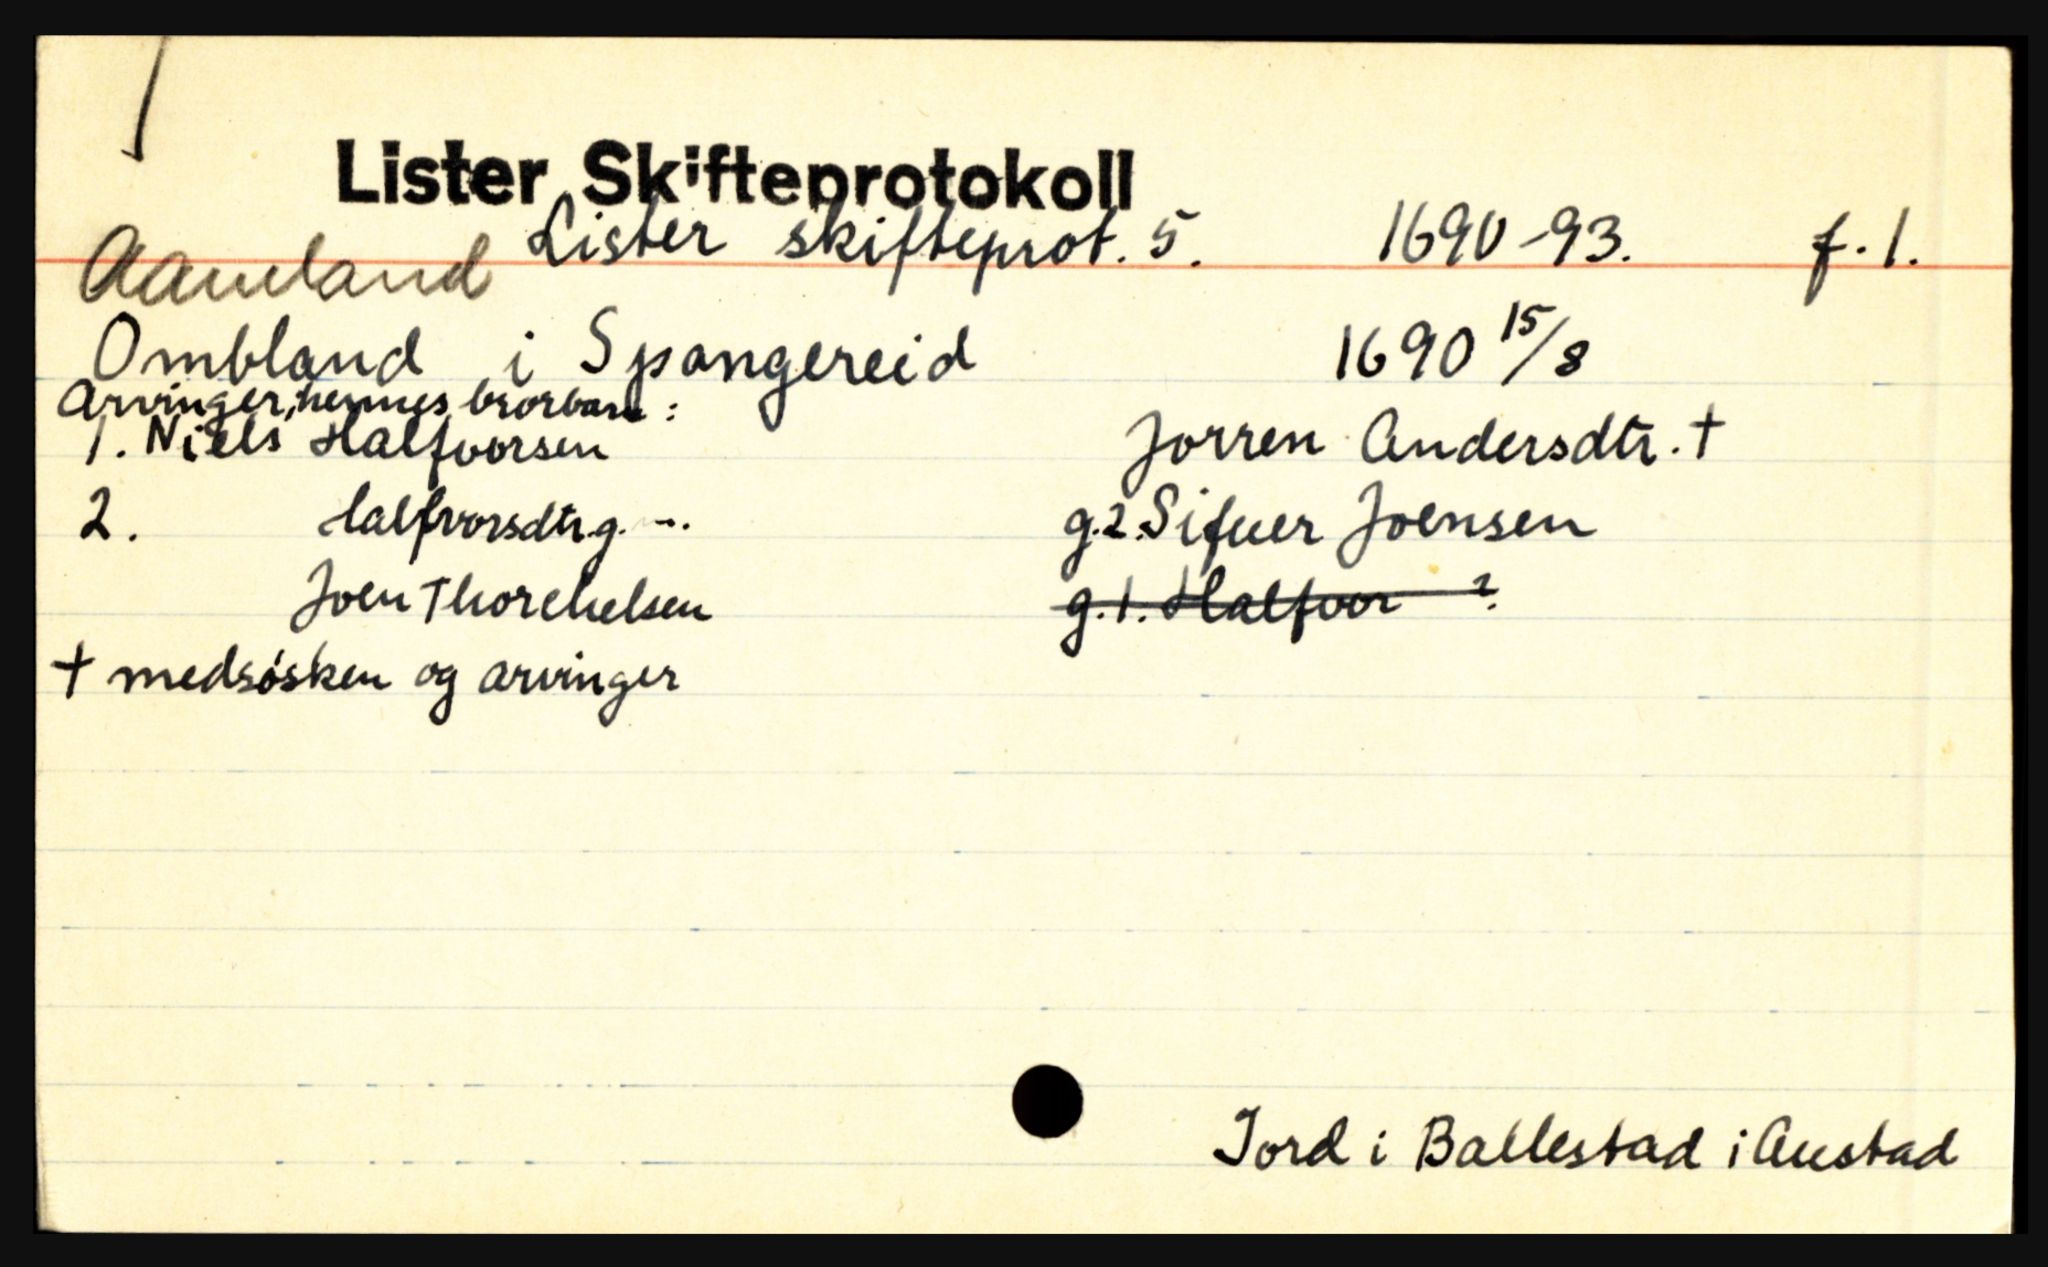 Lister Skifteprotokoll
Aameland Lister skifteprot. 5. 1690-93. f. 1.
Ombland i Spangereid 1690 15/8
Arvinger, hennes brorbarn:
1. Niels Halfvorsen Jorren Andersdtr. †
2. Halfvorsdtr. g. m. g. 2. Sifuer Joensen
Joen Thorchelsen g. 1. Halfvor ?
† medsøsken og arvinger
Jord i Ballestad i Austad